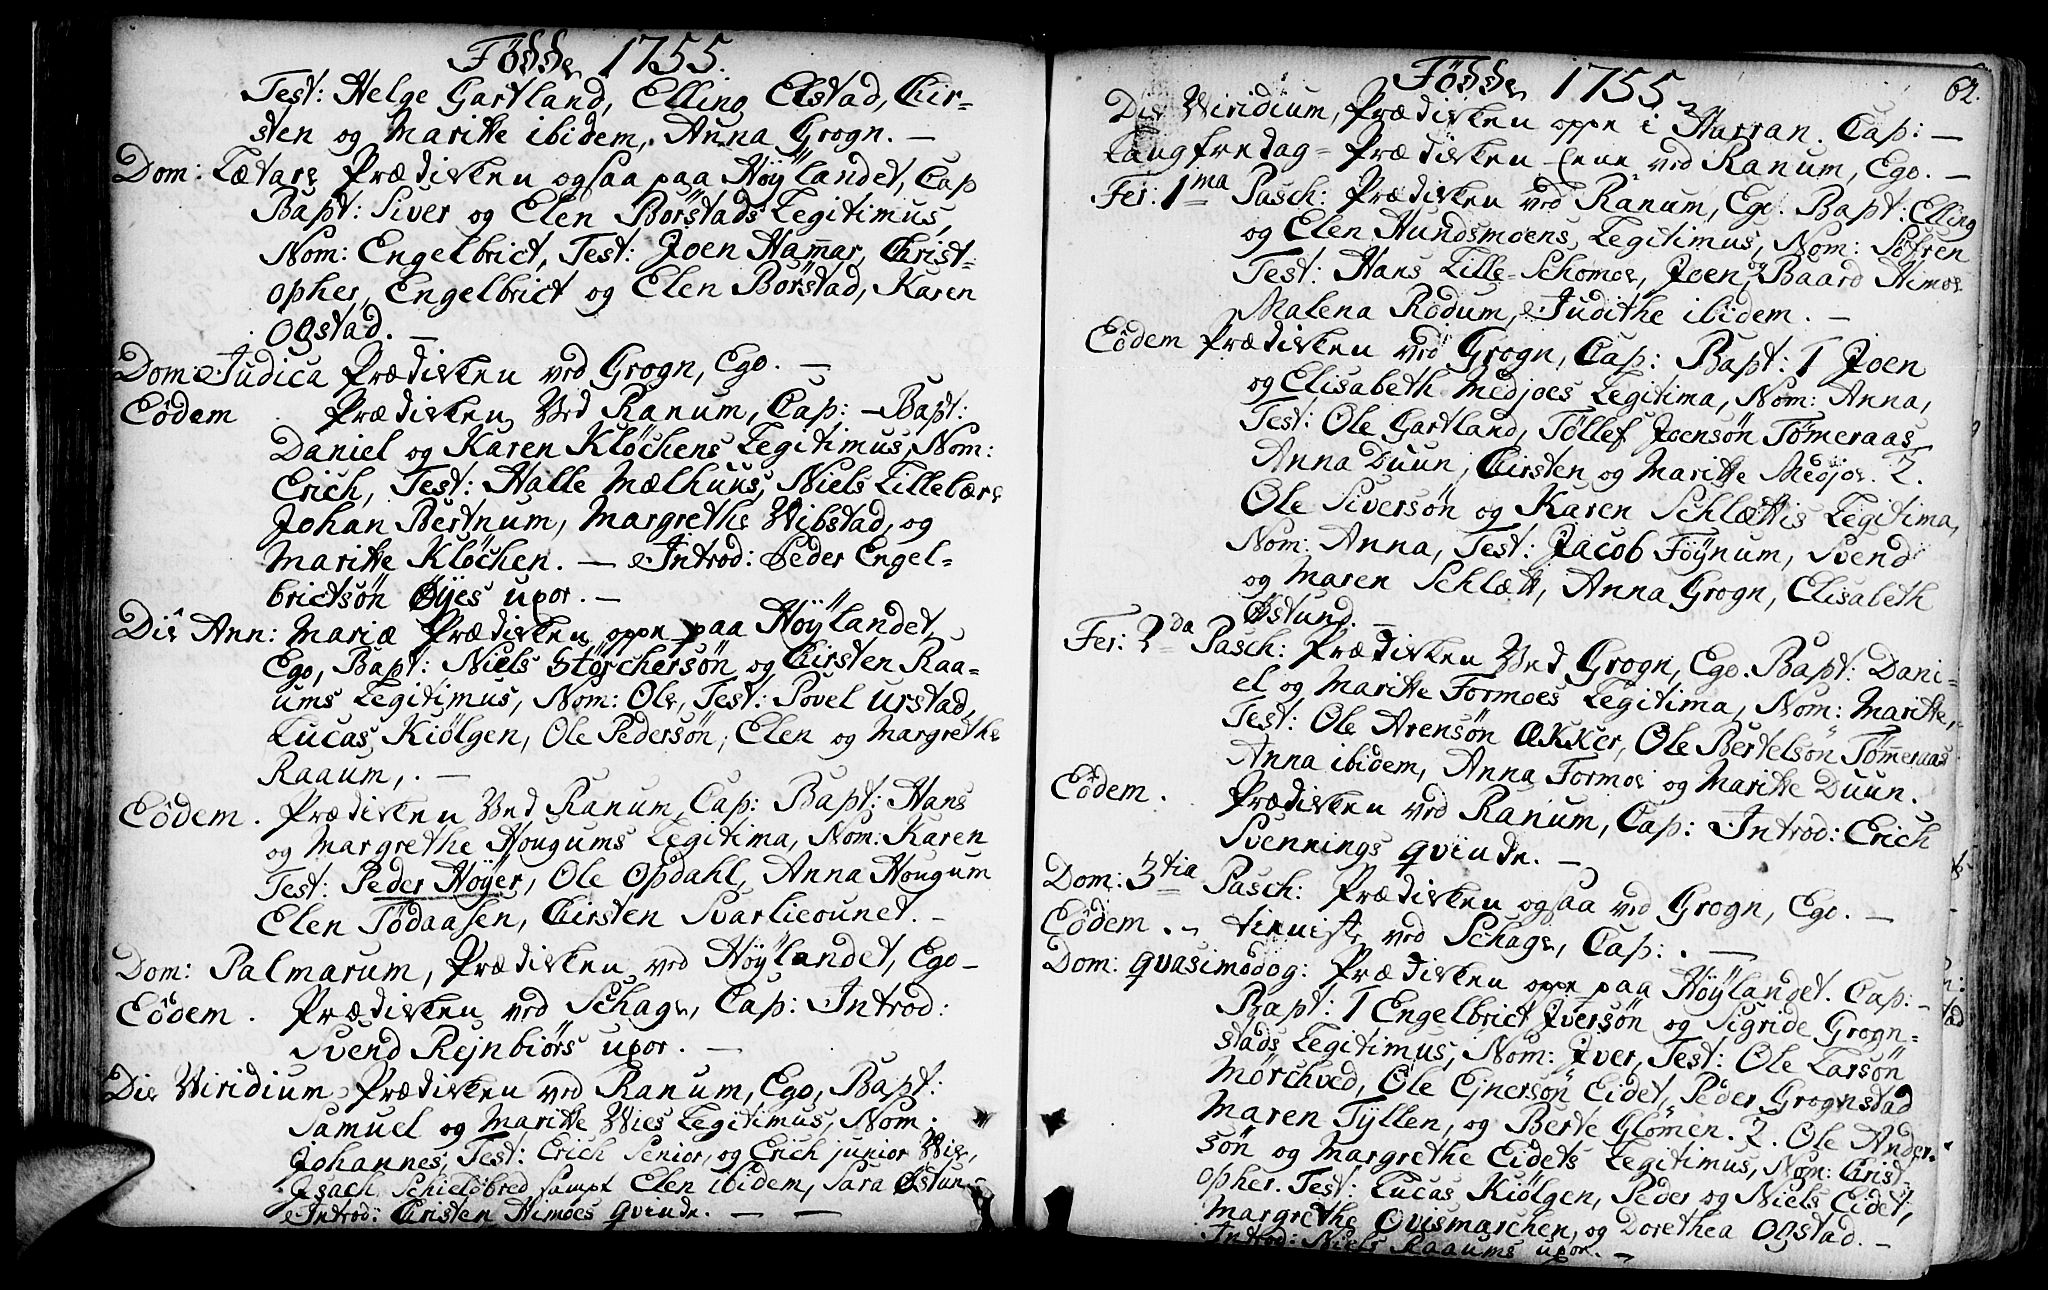 Födde 1755.
Test: Helge Gartland, Elling Elstad, Kir-
sten og Maritte ibidem, Anna Grogn. —
Dom: Lætare Prædicken ogsaa paa Höÿlandet, Cap
Bapt: Siver og Elen Börstads Legitimus,
Nom: Engelbrict, Test: Joen Hamar, Christ-
opher, Engelbrict og Elen Börstad, Karen
Ogstad. —
Dom: Judica Prædicken ved Grogn, Ego. —
Eôdem Prædicken Ved Ranum, Cap: — Bapt:
Daniel og Karen Klöchens Legitimus, Nom:
Erich, Test: Halle Mælhuus, Niels Lillebære
Johan Bertnum, Margrethe Wibstad, og
Maritte Klöchen. — Introd: Peder Engel-
brictsön Øÿes uxor. —
Die Ann: Mariæ Prædicken oppe paa Höÿlandet,
Ego, Bapt: Niels Störchersön og Kirsten Raa-
ums Legitimus, Nom: Ole, Test: Povel Urstad,
Lucas Kiölgen, Ole Pedersön, Elen og Margrethe
Raaum, . —
Eôdem. Prædicken Ved Ranum, Cap: Bapt: Hans
og Margrethe Hougums Legitima, Nom: Karen
Test: Peder Höÿer, Ole Opdahl, Anna Hougum
Elen Tödaasen, Kirsten Svarlieounet. —
Dom: Palmarum, Prædicken ved Höÿlandet, Ego —
Eôdem. Prædicken ved Schage, Cap: Introd:
Svend Rejnbiörs uxor. —
Die Viridium Prædicken ved Ranum, Ego, Bapt:
Samuel og Maritte Wies Legitimus, Nom:
Johannes, Test: Erich Senior, og Erich junior Wie,
Isach Schielöbred sampt Elen ibidem, Sara Østun-
Introd: Christen Himoes qvinde. — —
Födde 1755. 62.
Die Viridium, Prædicken oppe i Harran. Cap: —
Langfredag = Prædicken ene ved Ranum, Ego. —
Fer: 1ma Pasch: Prædicken ved Ranum, Ego. Bapt: Elling
og Elen Hundsmoens Legitimus, Nom: Söfren
Test: Hans Lille-Schomoe, Joen og Baard Himoe
Malena Rodum, Judithe ibidem. —
Eôdem Prædicken ved Grogn, Cap: Bapt: 1 Joen
og Elisabeth Medjoes Legitima, Nom: Anna,
Test: Ole Gartland, Töllef Joensön Tömeraas
Anna Duun, Kirsten og Maritte Medjoe. 2.
Ole Siversön og Karen Schlættis Legitima,
Nom: Anna, Test: Jacob Föÿnum, Svend
og Maren Schlætt, Anna Grogn, Elisabeth
Østund. —
Fer: 2da Pasch: Prædicken Ved Grogn, Ego. Bapt: Dani-
el og Maritte Formoes Legitima, Nom: Maritte,
Test: Ole Arensön Ækker, Ole Bertelsön Tömeraas
Anna ibidem, Anna Formoe og Maritte Duun.
Eôdem. Prædicken ved Ranum, Cap: Introd: Erich
Svennings qvinde. —
Dom: 3tia Pasch: Prædicken ogsaa ved Grogn, Ego. —
Eôdem. tieniste ved Schage, Cap: . —
Dom: Quasimodog: Prædicken oppe paa Höÿlandet. Cap: —
Bapt: 1 Engelbrict Iversön og Sigride Grogn-
stads Legitimus, Nom: Iver, Test: Ole Larsön
Mörchved, Ole Ejnersön Eidet, Peder Grognstad
Maren Tÿllen, og Berte Glömen. 2. Ole Ander-
sön og Margrethe Eidets Legitimus, Nom: Christ-
opher. Test: Lucas Kiölgen, Peder og Niels Eidet,
Margrethe Qvismarchen, og Dorethea Ogstad. —
Introd: Niels Raaums uxor. —